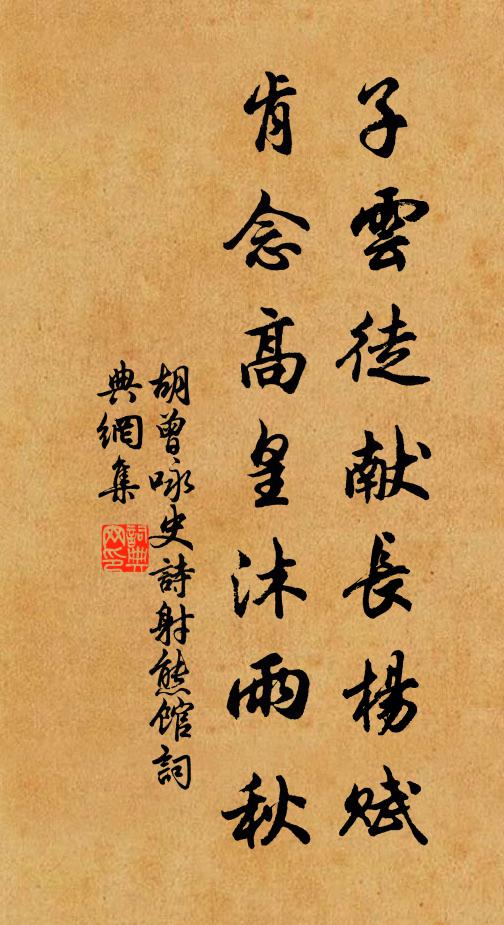 子雲徒献長楊赋
肯念高皇沐雨秋
胡曾咏史詩射熊館詞
典網集
詞典网印